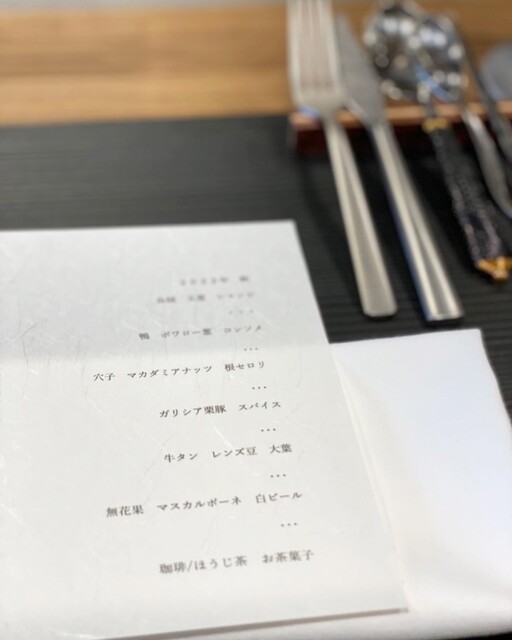 鴨 ポワロー葱 コンソメ
...
穴子 マカダミアナッツ 根セロリ
...
ガリシア栗豚 スパイス
...
牛タン レンズ豆 大葉
...
無花果 マスカルポーネ 白ビール
...
珈琲/ほうじ茶 お茶菓子